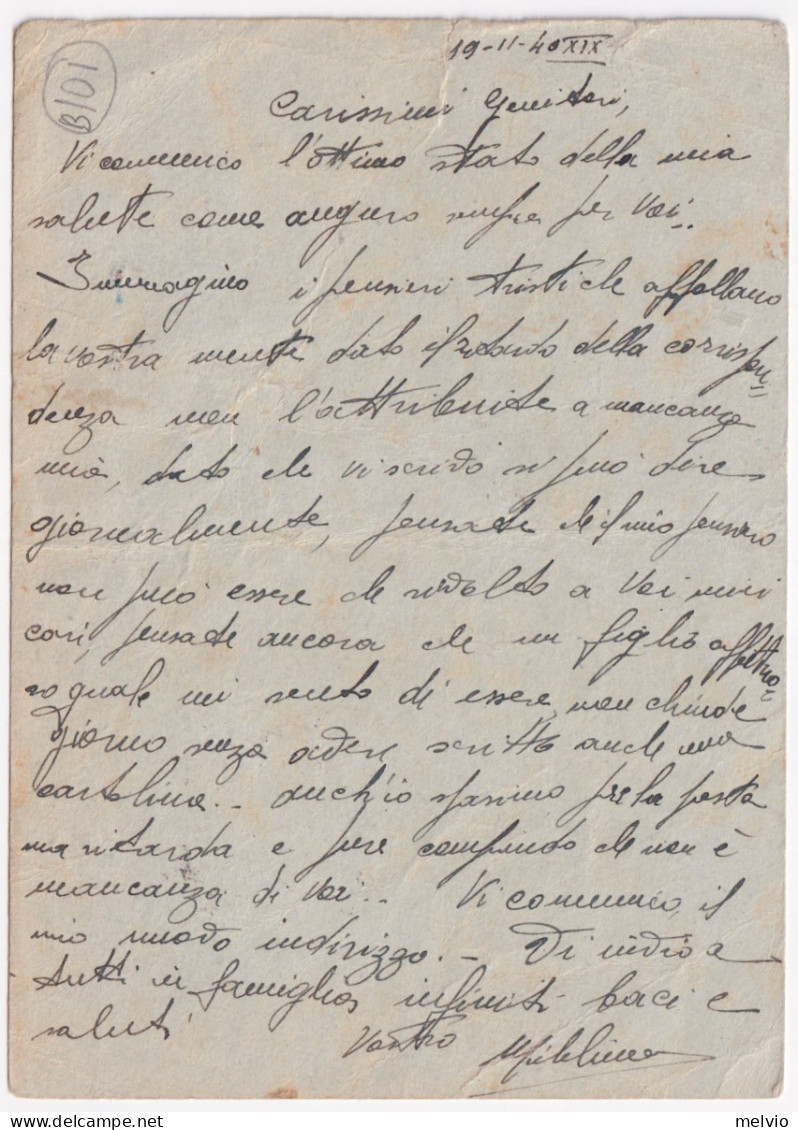 B/01
19-11-40 XIX
Carissimi Genitori,
Vi comunico l'ottimo stato della mia
salute come auguro sempre per Voi..
Immagino i pensieri tristi che affollano
la vostra mente dato il ritardo della corrispon=
denza non l'attribuite a mancanza
mia, dato che vi scrivo si può dire
giornalmente, pensate che il mio pensiero
non può essere che rivolto a Voi miei
cari, pensate ancora che un figlio affettuo=
so quale mi sento di essere non chiude
giorno senza avere scritto anche una
cartolina.. anch'io spasimo per la posta
ma ritarda e pure comprendo che non è
mancanza di Voi.. Vi comunico, il
mio nuovo indirizzo.- Vi invio a
tutti in famiglia infiniti baci e
saluti
Vostro
melvio